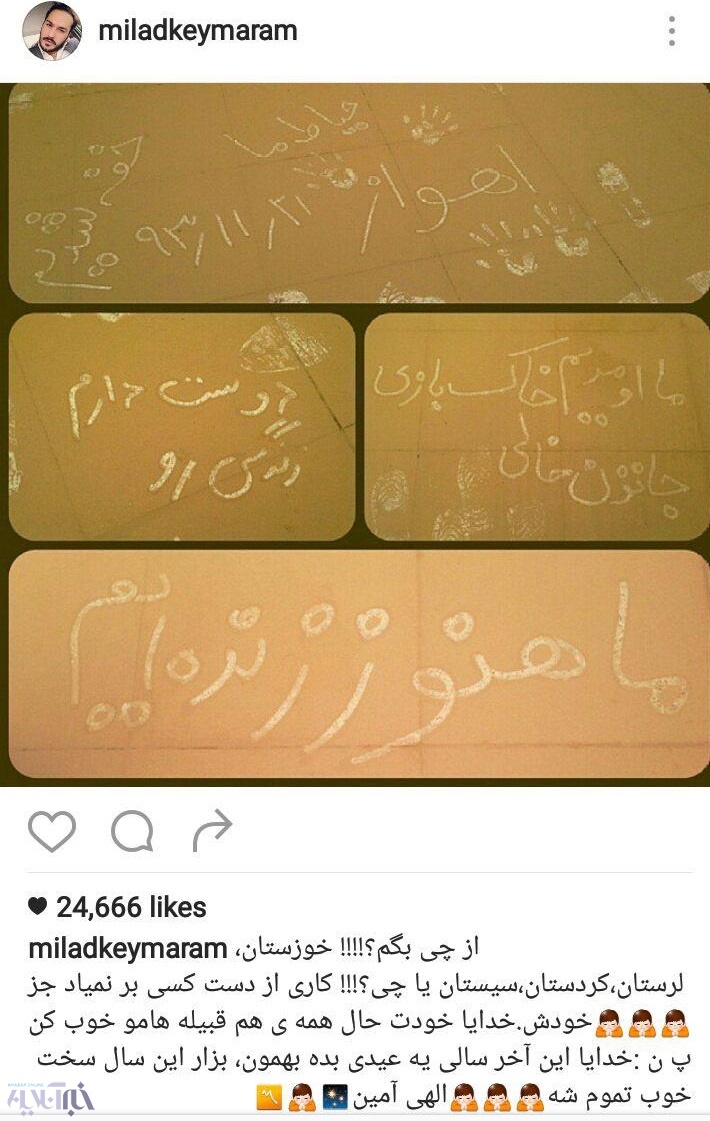 miladkeymaram
حیاط ما
اهواز
۹۳/۱۱/۲۱
دوست دارم
زندگی رو
ما اومدیم خاک بازی
جاتون خالی
ما هنوز زنده ایم
24,666 likes
miladkeymaram از چی بگم؟!!!! خوزستان،
لرستان،کردستان،سیستان یا چی؟!!! کاری از دست کسی بر نمیاد جز
🙏🙏🙏خودش.خدایا خودت حال همه ی هم قبیله هامو خوب کن
پ ن :خدایا این آخر سالی یه عیدی بده بهمون، بزار این سال سخت
خوب تموم شه🙏🙏🙏الهی آمین🎇🙏〽️
خبرآنلاین